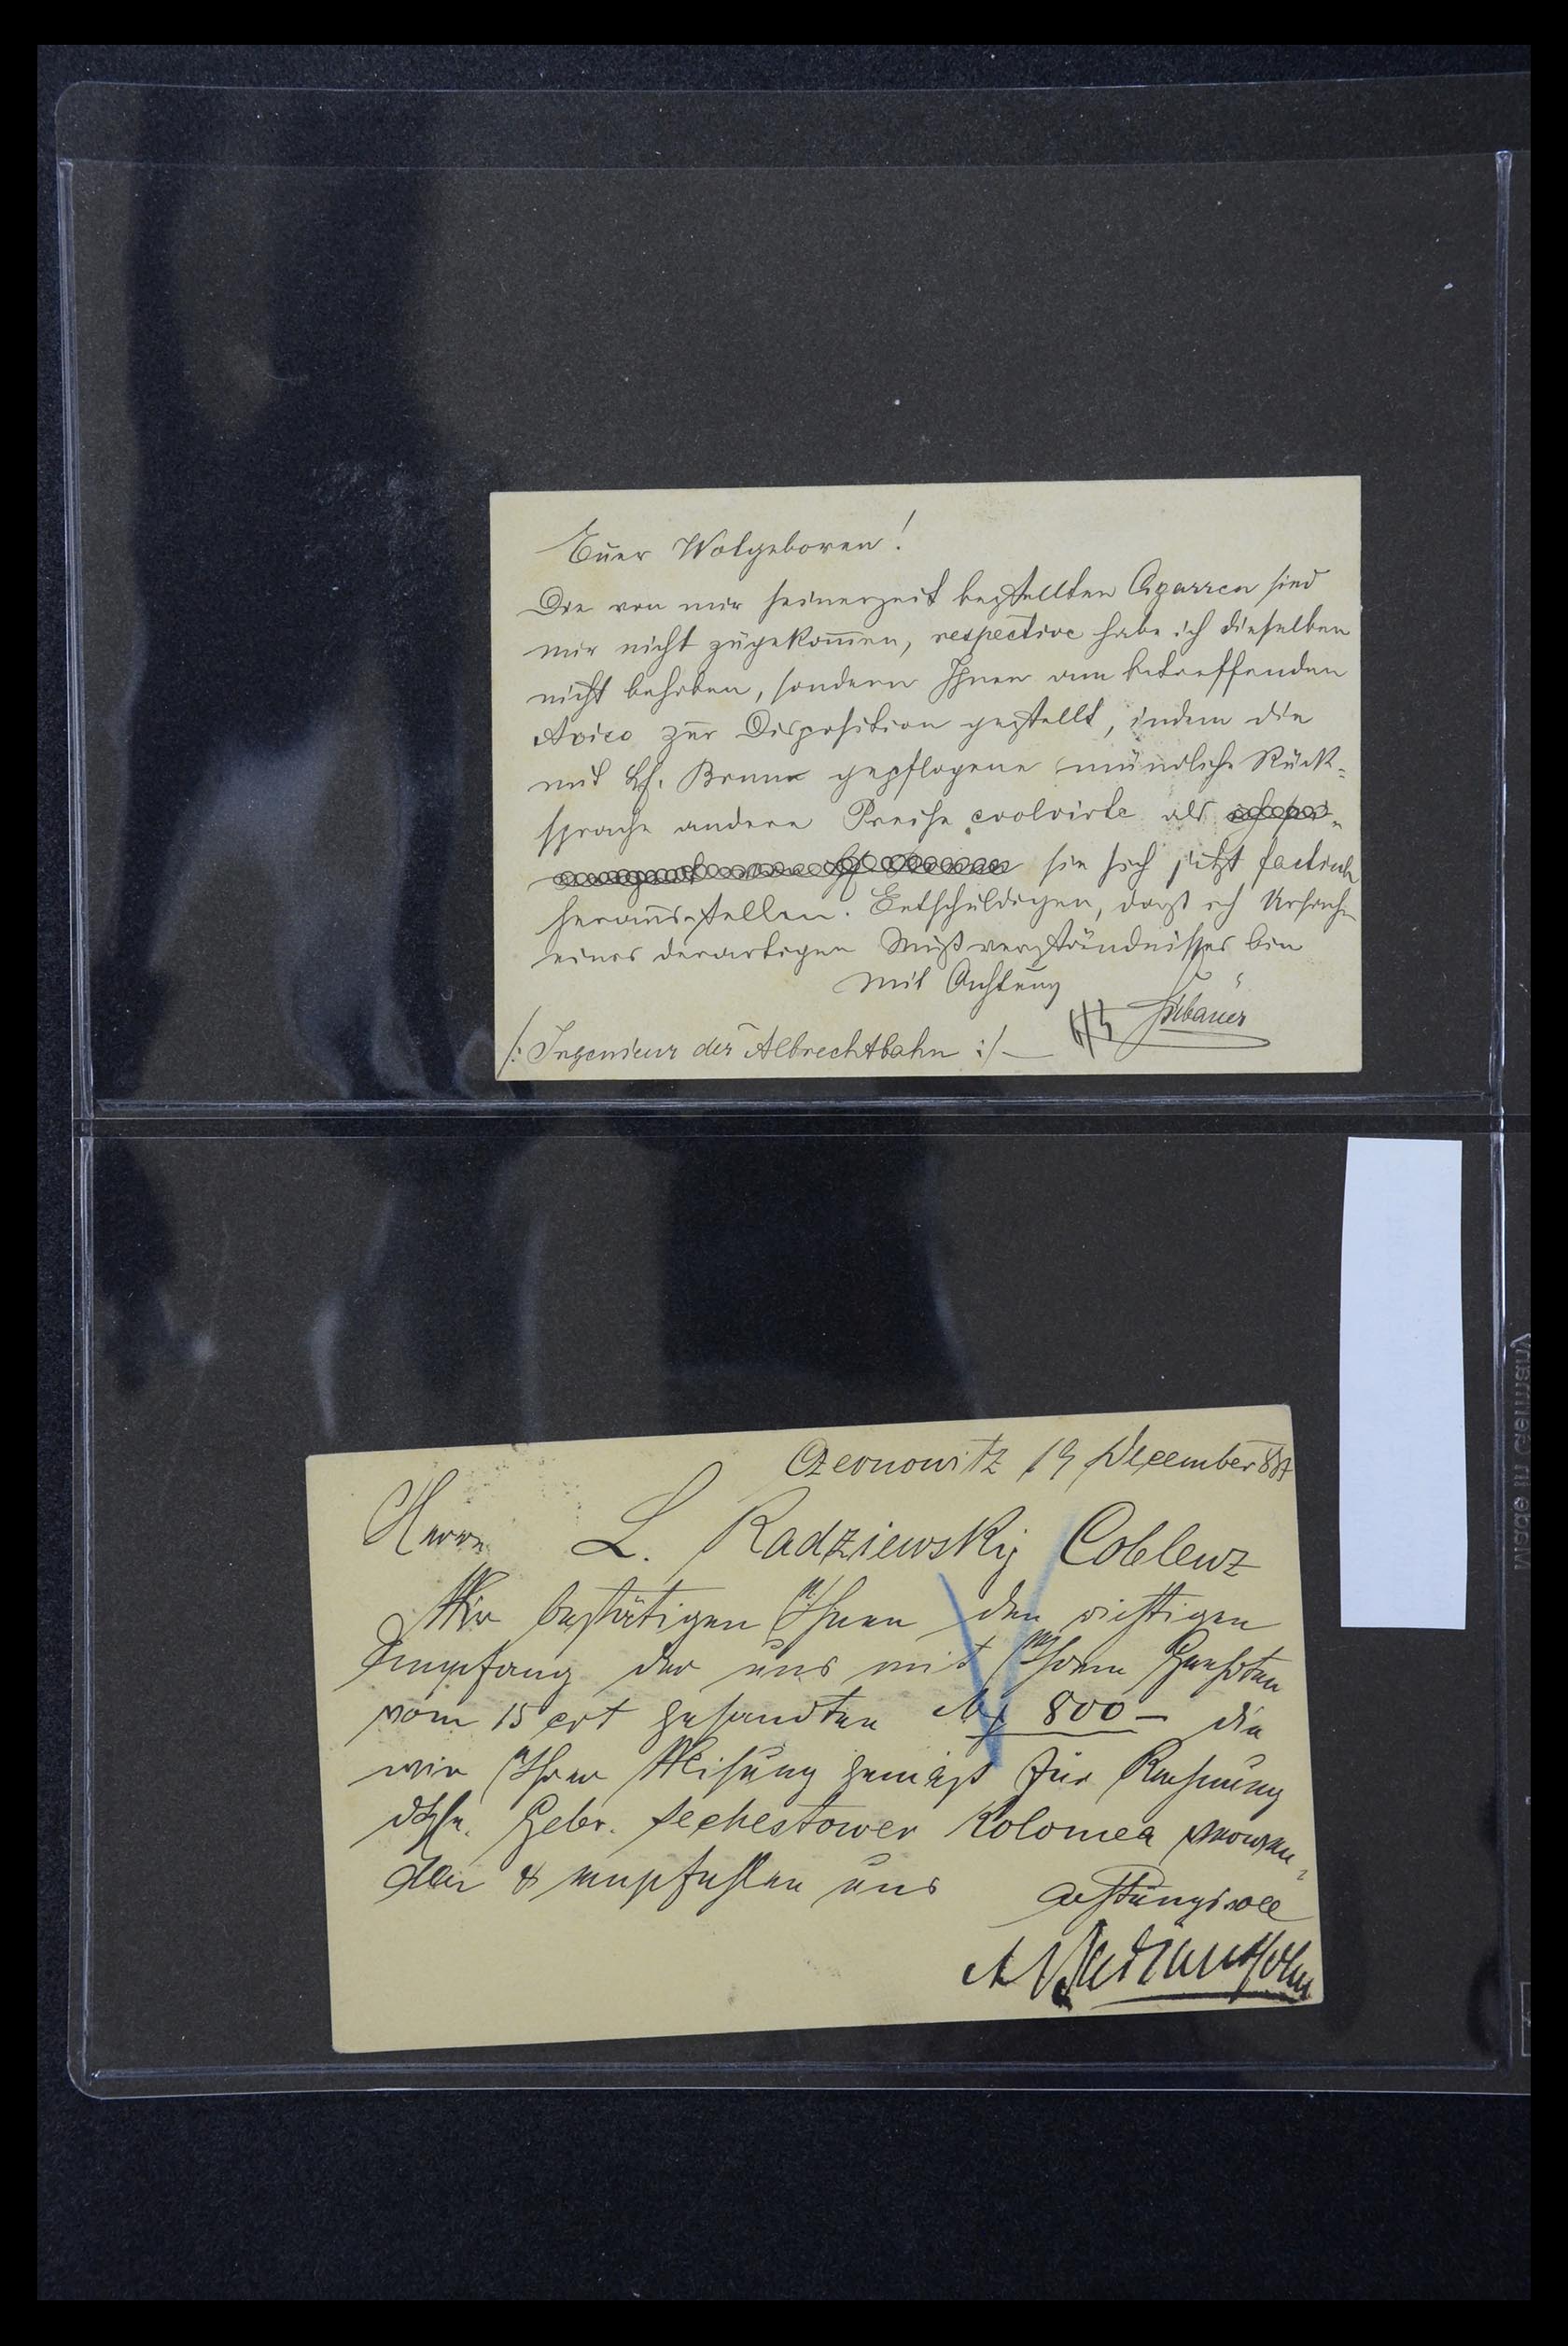 Euer Wolgeboren!
Die von mir seinerzeit bestellten Cigarren sind
mir nicht zugekom̄en, respective habe ich dieselben
nicht behoben, sondern Ihnen am betreffenden
Aviso zur Disposition gestellt, indem die
mit H. gepflogene mündliche Rück=
sprache andere Preise evolvirte als
sie sich jetzt factisch
herausstellen. Entschuldigen, daß ich Ursache
eines derartigen Mißverständnisses bin
Mit Achtung
/: Ingenieur der Albrechtbahn :/ —
Czernowitz 19 December
Herrn L. Radziewskij Coblenz
Wir bestätigen Ihnen den richtigen
Empfang der uns mit Ihrem Geehrten
vom 15 crt gesandten 800 — die
wir Ihrer Weisung gemäß für Rechnung
Gebr. Kolomea
& empfehlen uns
Achtungsvoll
Made in Germany